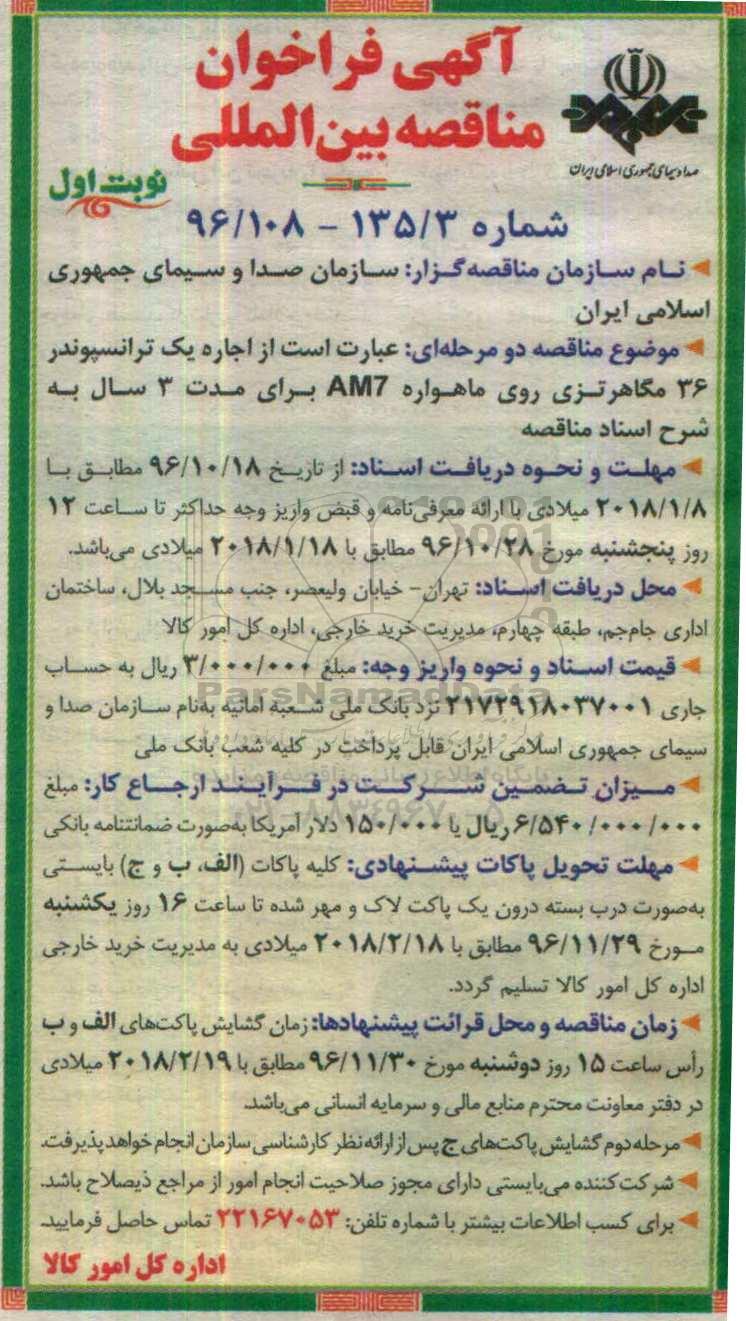 آگهی فراخوان
مناقصه بین‌المللی
صدا و سیمای جمهوری اسلامی ایران
نوبت اول
شماره ۱۳۵/۳ - ۹۶/۱۰۸
نام سازمان مناقصه‌گزار: سازمان صدا و سیمای جمهوری
اسلامی ایران
موضوع مناقصه دو مرحله‌ای: عبارت است از اجاره یک ترانسپوندر
۳۶ مگاهرتزی روی ماهواره AM7 برای مدت ۳ سال به
شرح اسناد مناقصه
مهلت و نحوه دریافت اسناد: از تاریخ ۹۶/۱۰/۱۸ مطابق با
۲۰۱۸/۱/۸ میلادی با ارائه معرفی‌نامه و قبض واریز وجه حداکثر تا ساعت ۱۲
روز پنجشنبه مورخ ۹۶/۱۰/۲۸ مطابق با ۲۰۱۸/۱/۱۸ میلادی می‌باشد.
محل دریافت اسناد: تهران- خیابان ولیعصر، جنب مسجد بلال، ساختمان
اداری جام‌جم، طبقه چهارم، مدیریت خرید خارجی، اداره کل امور کالا
قیمت اسناد و نحوه واریز وجه: مبلغ ۳/۰۰۰/۰۰۰ ریال به حساب
ParsNamadData
جاری ۲۱۷۲۹۱۸۰۳۷۰۰۱ نزد بانک ملی شعبه امانیه به‌نام سازمان صدا و
سیمای جمهوری اسلامی ایران قابل پرداخت در کلیه شعب بانک ملی
میزان تضمین شرکت در فرایند ارجاع کار: مبلغ
۶/۵۴۰/۰۰۰/۰۰۰ ریال یا ۱۵۰/۰۰۰ دلار آمریکا به‌صورت ضمانتنامه بانکی
مهلت تحویل پاکات پیشنهادی: کلیه پاکات (الف، ب و ج) بایستی
به‌صورت درب بسته درون یک پاکت لاک و مهر شده تا ساعت ۱۶ روز یکشنبه
مورخ ۹۶/۱۱/۲۹ مطابق با ۲۰۱۸/۲/۱۸ میلادی به مدیریت خرید خارجی
اداره کل امور کالا تسلیم گردد.
زمان مناقصه و محل قرائت پیشنهادها: زمان گشایش پاکت‌های الف و ب
رأس ساعت ۱۵ روز دوشنبه مورخ ۹۶/۱۱/۳۰ مطابق با ۲۰۱۸/۲/۱۹ میلادی
در دفتر معاونت محترم منابع مالی و سرمایه انسانی می‌باشد.
مرحله دوم گشایش پاکت‌های ج پس از ارائه نظر کارشناسی سازمان انجام خواهد پذیرفت.
شرکت‌کننده می‌بایستی دارای مجوز صلاحیت انجام امور از مراجع ذیصلاح باشد.
برای کسب اطلاعات بیشتر با شماره تلفن: ۲۲۱۶۷۰۵۳ تماس حاصل فرمایید.
اداره کل امور کالا